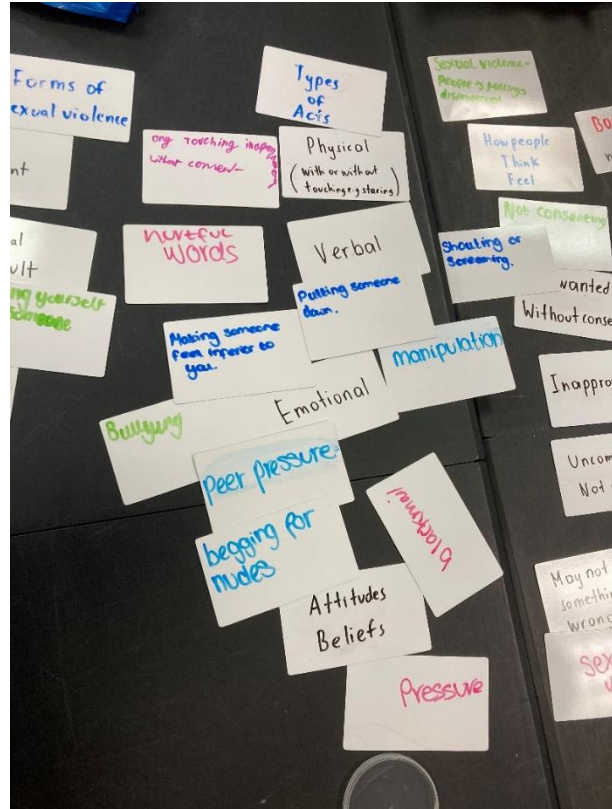 Forms of
exual violence
nt
al
ult
ng yourself
someone
Types
of
Acts
any Touching
without consent
Physical
(with or without
touching e.g staring)
hurtful
words
Verbal
Putting someone
down.
Making someone
feel inferior to
you.
manipulation
Bullying
Emotional
peer pressure
begging for
nudes
blackmail
Attitudes
Beliefs
Pressure
Sexual violence-
People's feelings
disrespected
How people
Think
Feel
Not consenting
Shouting or
screaming.
wanted
Without conse
Inappro
Uncom
Not
May not
somethin
wrong
sex